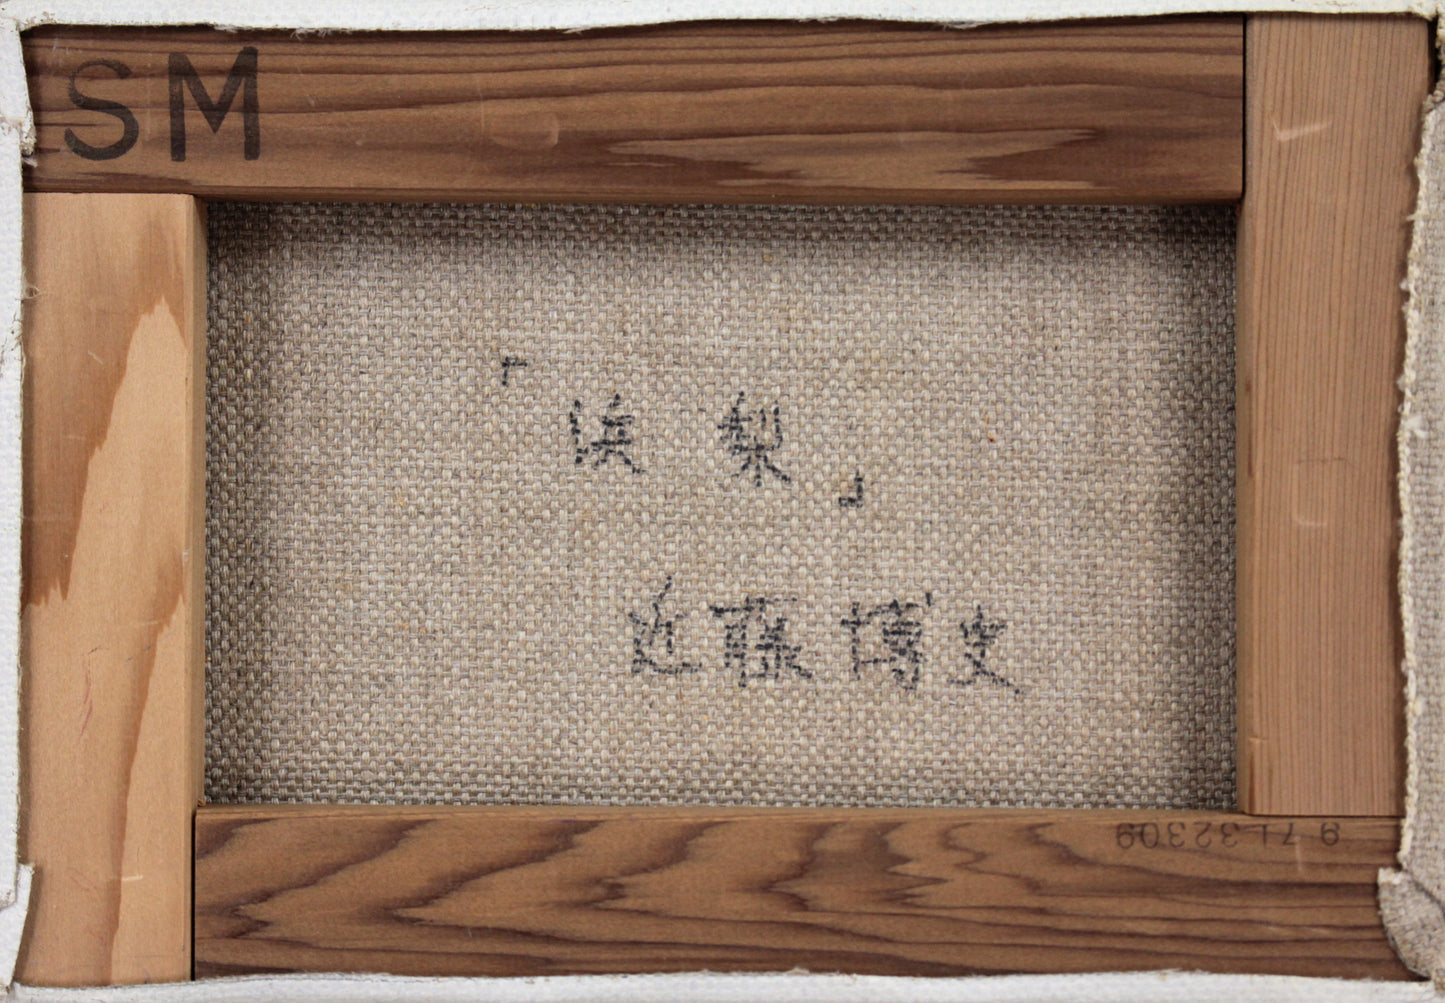 SM
「浜梨」
近藤博史
9 7L32309